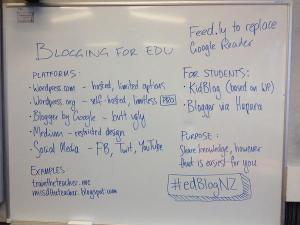 Feed.ly to replace
Google Reader
BLOGGING FOR EDU
PLATFORMS:
• Wordpress.com - hosted, limited options
• Wordpress.org - self-hosted, limitless PRO
• Blogger by Google - but ugly
• Medium - restricted design
• Social Media - FB, Twit, YouTube
EXAMPLES:
teamtheteacher.me
missdtheteacher.blogspot.com
FOR STUDENTS:
• KidBlog (based on WP)
• Blogger via Hapara
PURPOSE:
Share knowledge, however
that is easiest for you
#edBlogNZ